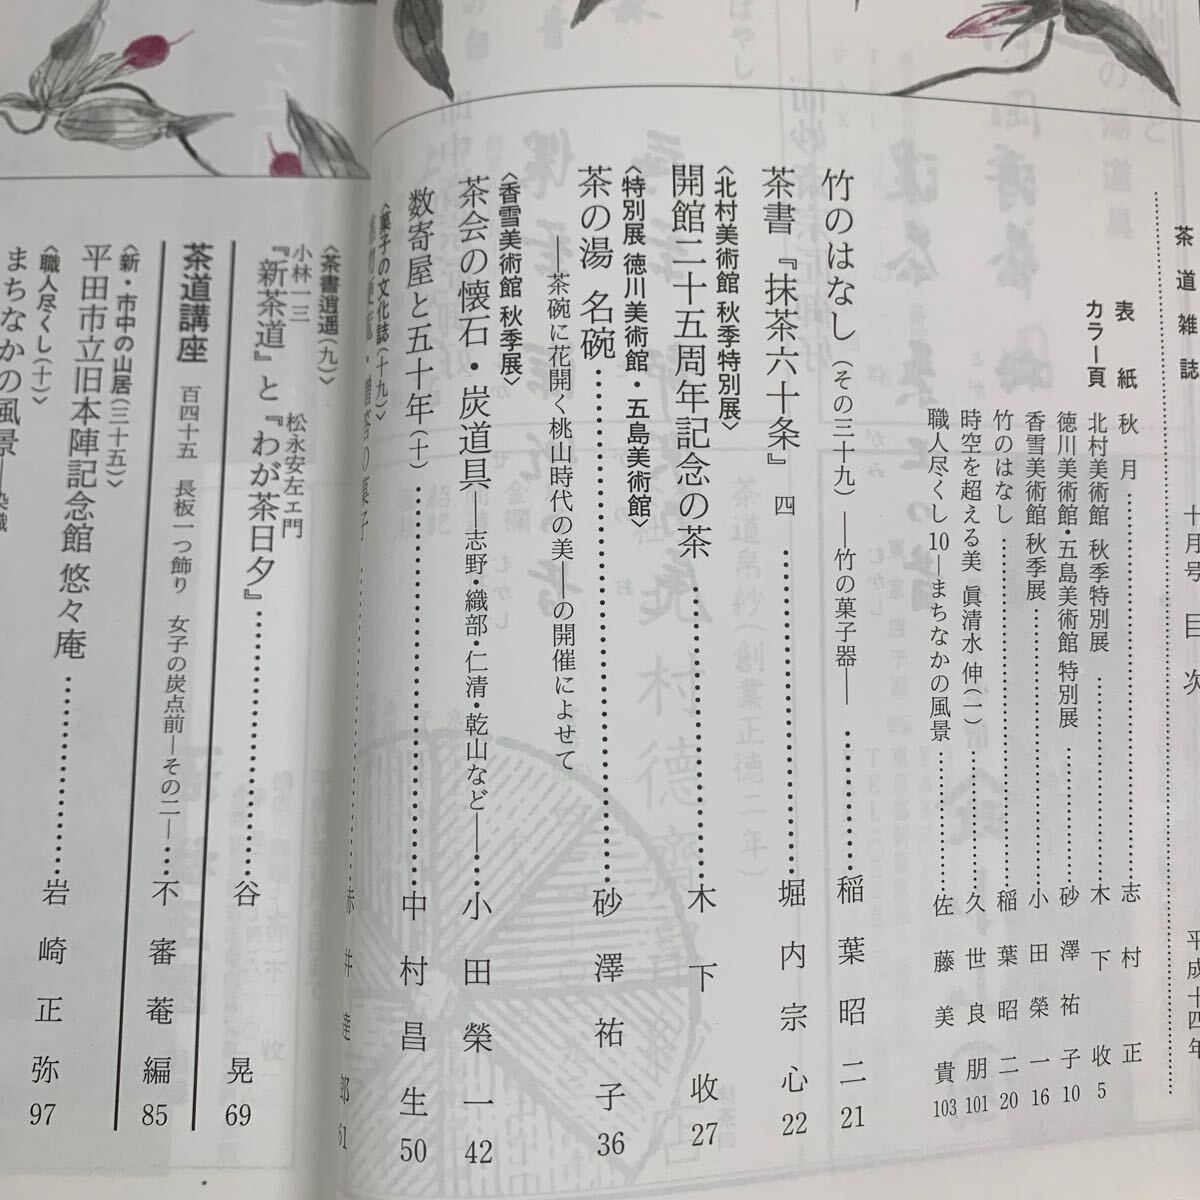 茶道雑誌 十月号 目次 平成十四年
表紙 秋月 志村正
カラー頁 北村美術館 秋季特別展 木下收 5
徳川美術館・五島美術館 特別展 砂澤祐子 10
香雪美術館 秋季展 小田榮一 16
竹のはなし 稲葉昭二 20
時空を超える美 眞清水 伸(一) 久世良朋 101
職人尽くし10―まちなかの風景 佐藤美貴 103
竹のはなし(その三十九)―竹の菓子器― 稲葉昭二 21
茶書『抹茶六十条』四 堀内宗心 22
〈北村美術館 秋季特別展〉
開館二十五周年記念の茶 木下收 27
〈特別展 徳川美術館・五島美術館〉
茶の湯 名碗 砂澤祐子 36
―茶碗に花開く桃山時代の美―の開催によせて
〈香雪美術館 秋季展〉
茶会の懐石・炭道具―志野・織部・仁清・乾山など― 小田榮一 42
数寄屋と五十年(十) 中村昌生 50
〈菓子の文化誌(十九)〉
贈答の菓子 赤井達郎 61
〈茶書逍遥(九)〉
小林一三『新茶道』と松永安左エ門『わが茶日夕』 谷晃 69
茶道講座 百四十五 長板一つ飾り 女子の炭点前―その二― 不審菴編 85
〈新・市中の山居(三十五)〉
平田市立旧本陣記念館 悠々庵 岩崎正弥 97
〈職人尽くし(十)〉
まちなかの風景―染織